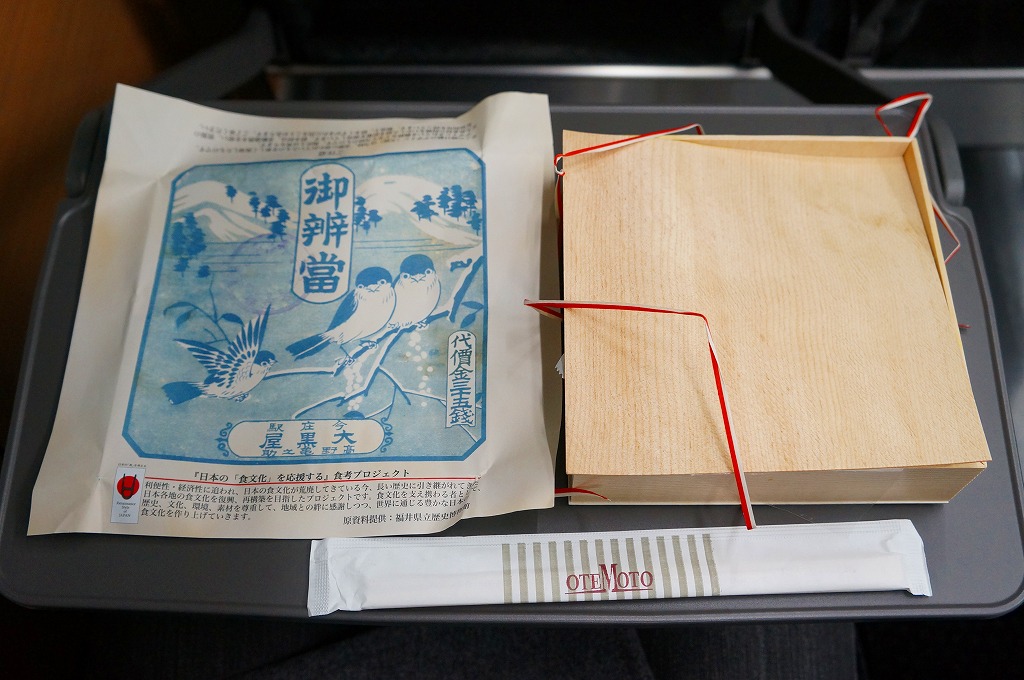 御辨當
代價金三十五錢
今庄駅
大黒屋
高野亀之助
『日本の「食文化」を応援する』食考プロジェクト
利便性・経済性に追われ、日本の食文化が荒廃してきている今、長い歴史に引き継がれてき
日本各地の食文化を復興、再構築を目指したプロジェクトです。食文化を支え携わる者と
歴史、文化、環境、素材を尊重して、地域との絆に感謝しつつ、世界に通じる豊かな日本
食文化を作り上げていきます。
原資料提供：福井県立歴史博物館
OTEMOTO